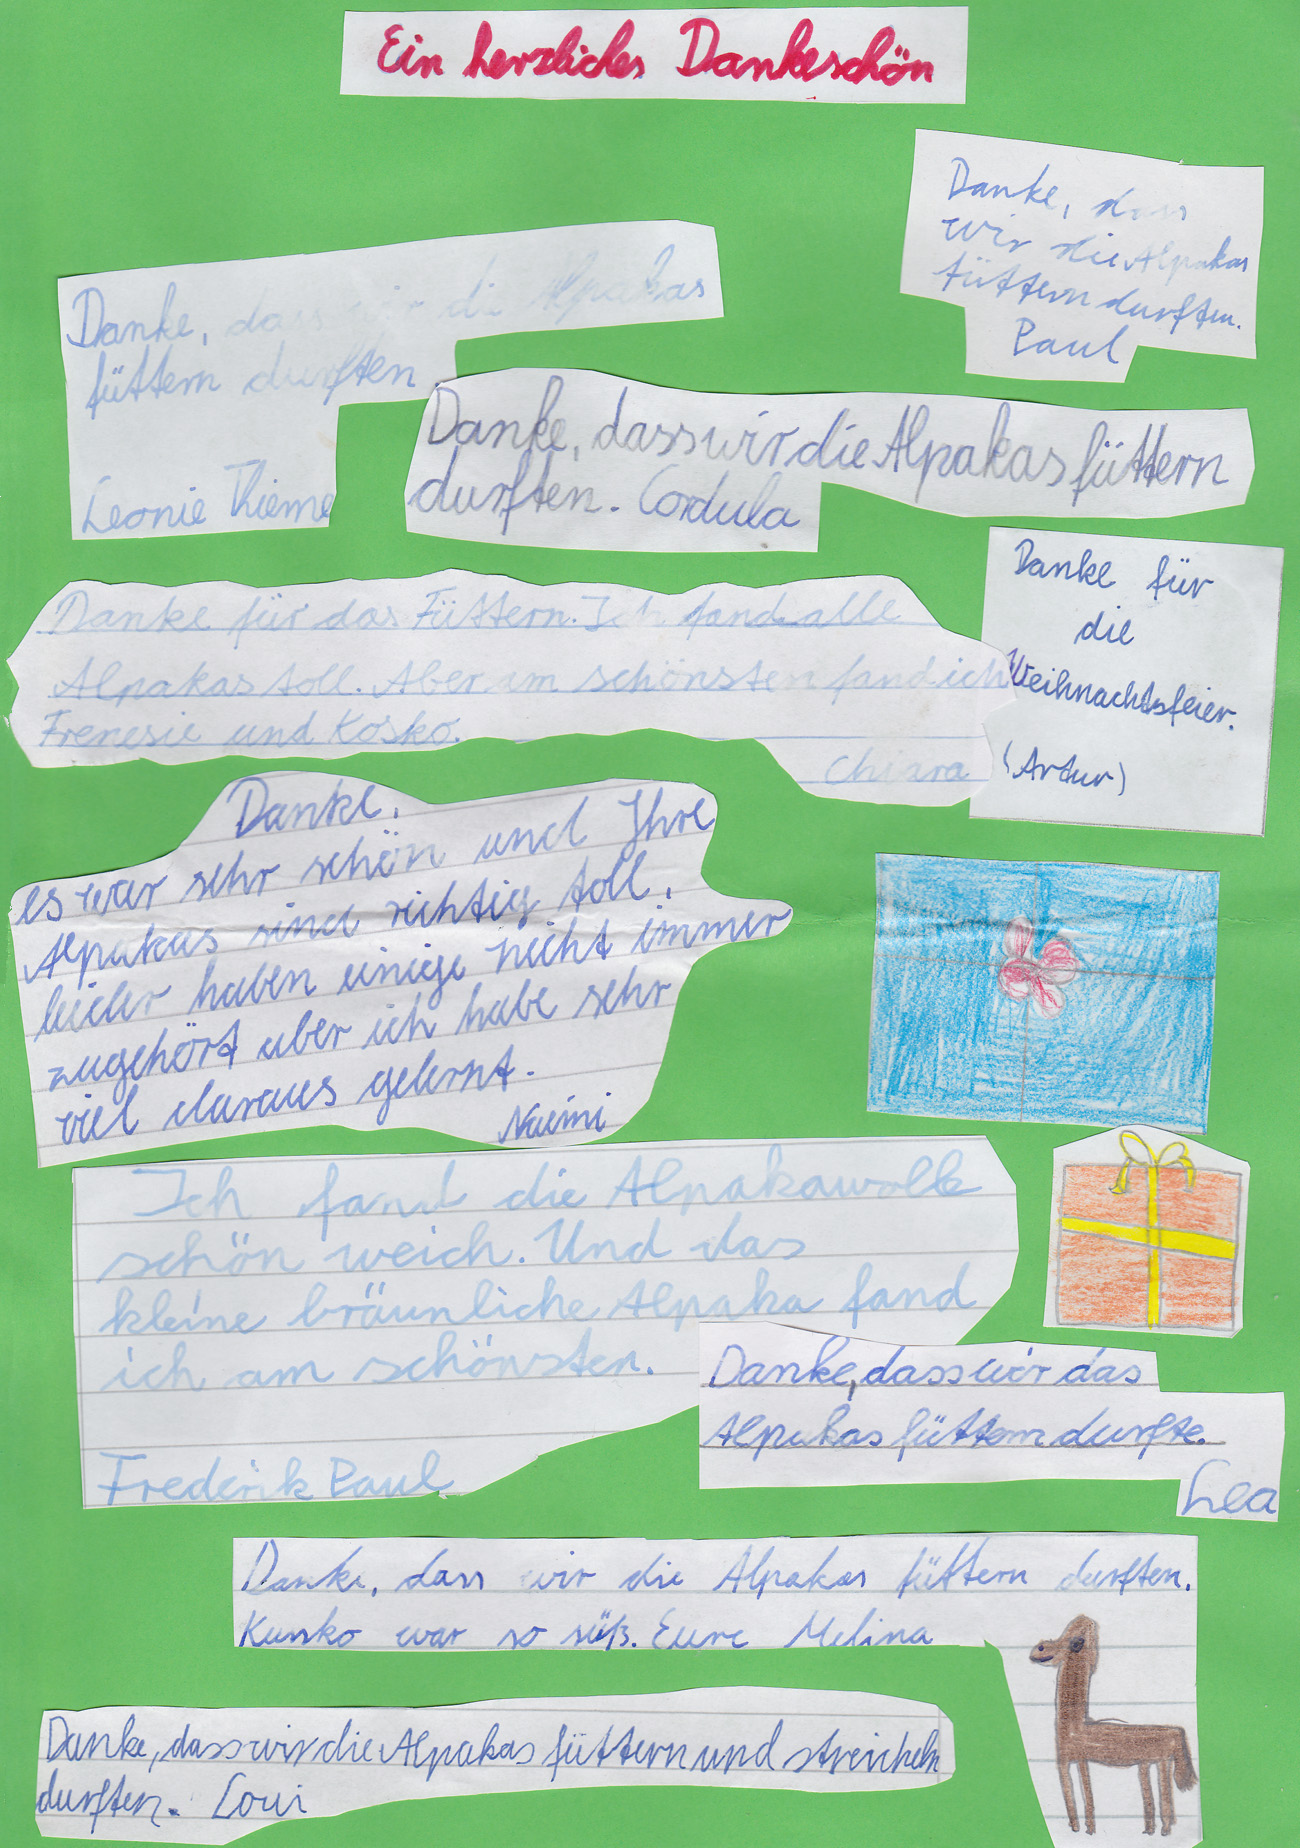 Ein herzliches Dankeschön
Danke, dass
wir die Alpakas
füttern durften.
Paul
Danke, dass wir die Alpakas
füttern durften
Leonie Thieme
Danke, dass wir die Alpakas füttern
durften. Cordula
Danke für
die
Weihnachtsfeier.
(Artur)
Danke für das Füttern. Ich fand alle
Alpakas toll. Aber am schönsten fand ich
Frenesie und Kosko.
Chiara
Danke,
es war sehr schön und Ihre
Alpakas sind richtig toll,
leider haben einige nicht immer
zugehört aber ich habe sehr
viel daraus gelernt.
Naimi
Ich fand die Alpakawolle
schön weich. Und das
kleine bräunliche Alpaka fand
ich am schönsten.
Frederik Paul
Danke, dass wir das
Alpakas füttern durfte.
Lea
Danke, dass wir die Alpakas füttern durften.
Kusko war so süß. Eure Melina
Danke, dass wir die Alpakas füttern und streicheln
durften. Loui